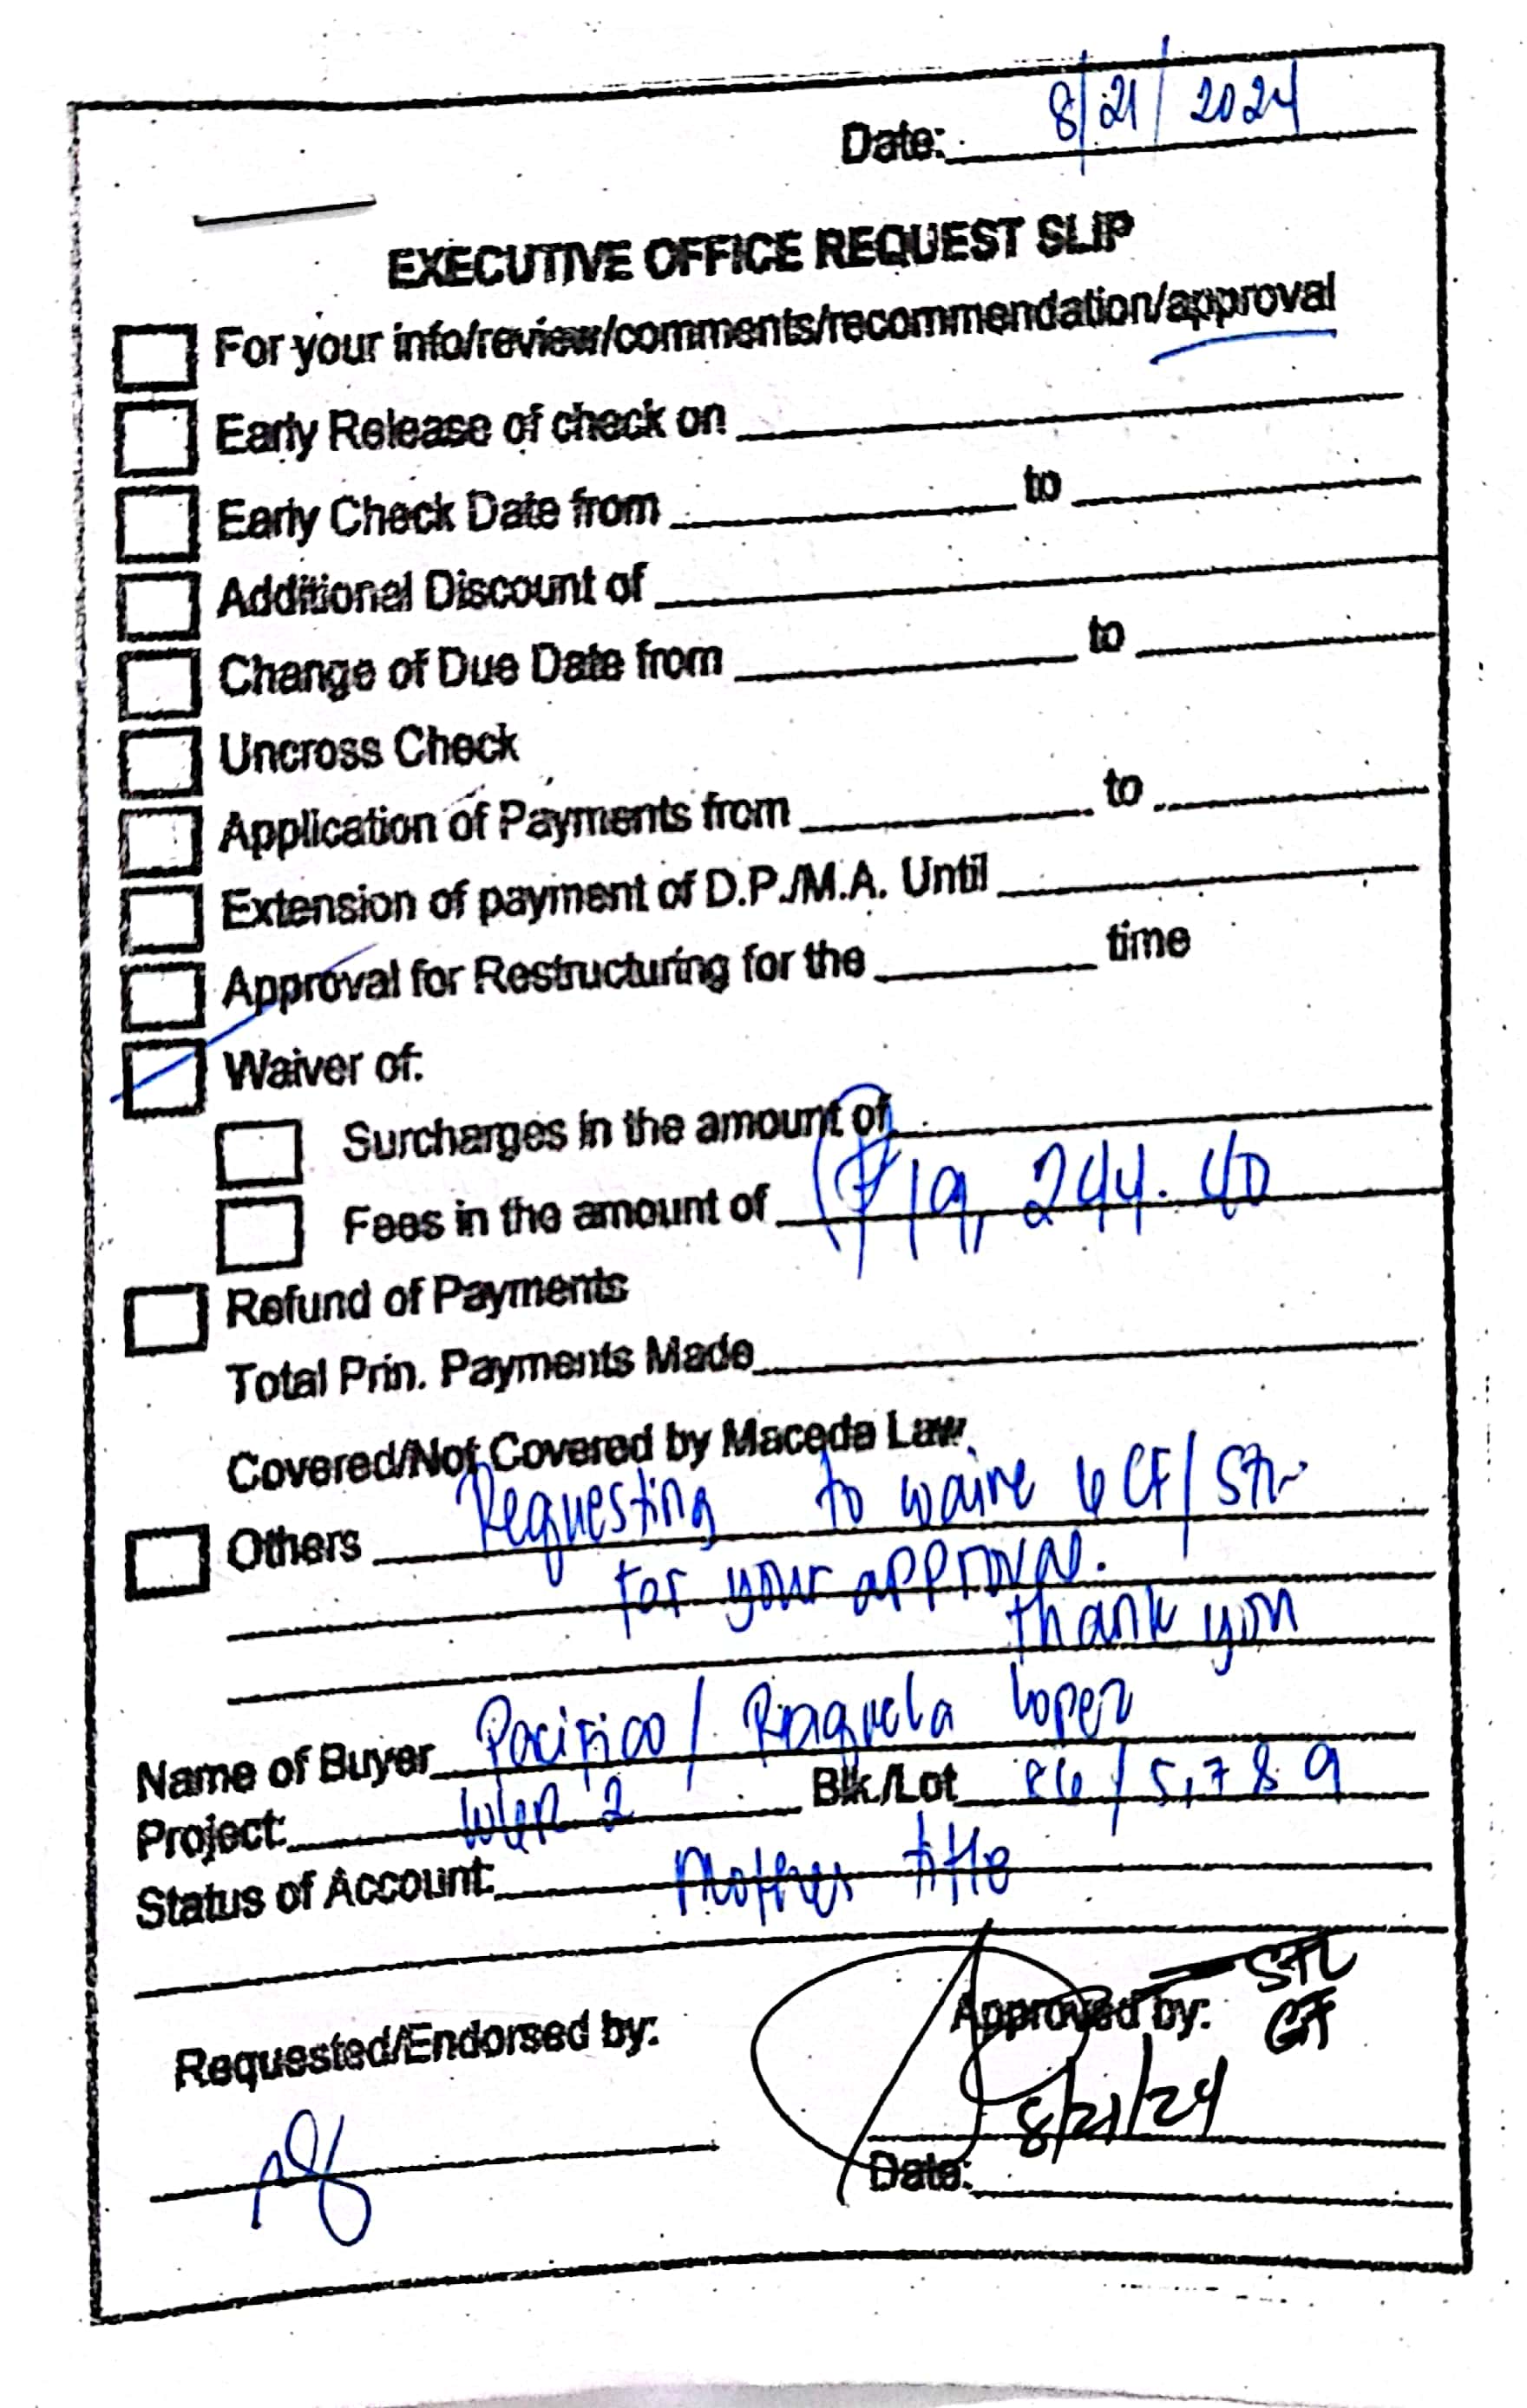 Date: 8/21/2024
EXECUTIVE OFFICE REQUEST SLIP
For your info/review/comments/recommendation/approval
Early Release of check on
Early Check Date from to
Additional Discount of
Change of Due Date from to
Uncross Check
Application of Payments from to
Extension of payment of D.P./M.A. Until
Approval for Restructuring for the time
Waiver of:
Surcharges in the amount of
Fees in the amount of (₱19,244.40
Refund of Payments
Total Prin. Payments Made
Covered/Not Covered by Maceda Law
Others Requesting to waive CF/
for your approval.
thank you
Name of Buyer Pacifico/ Raquela Lopez
Project: 2 Blk./Lot /5,7 8 9
Status of Account: Mother title
Requested/Endorsed by:
Approved by: STL
CF
8/21/24
Date: